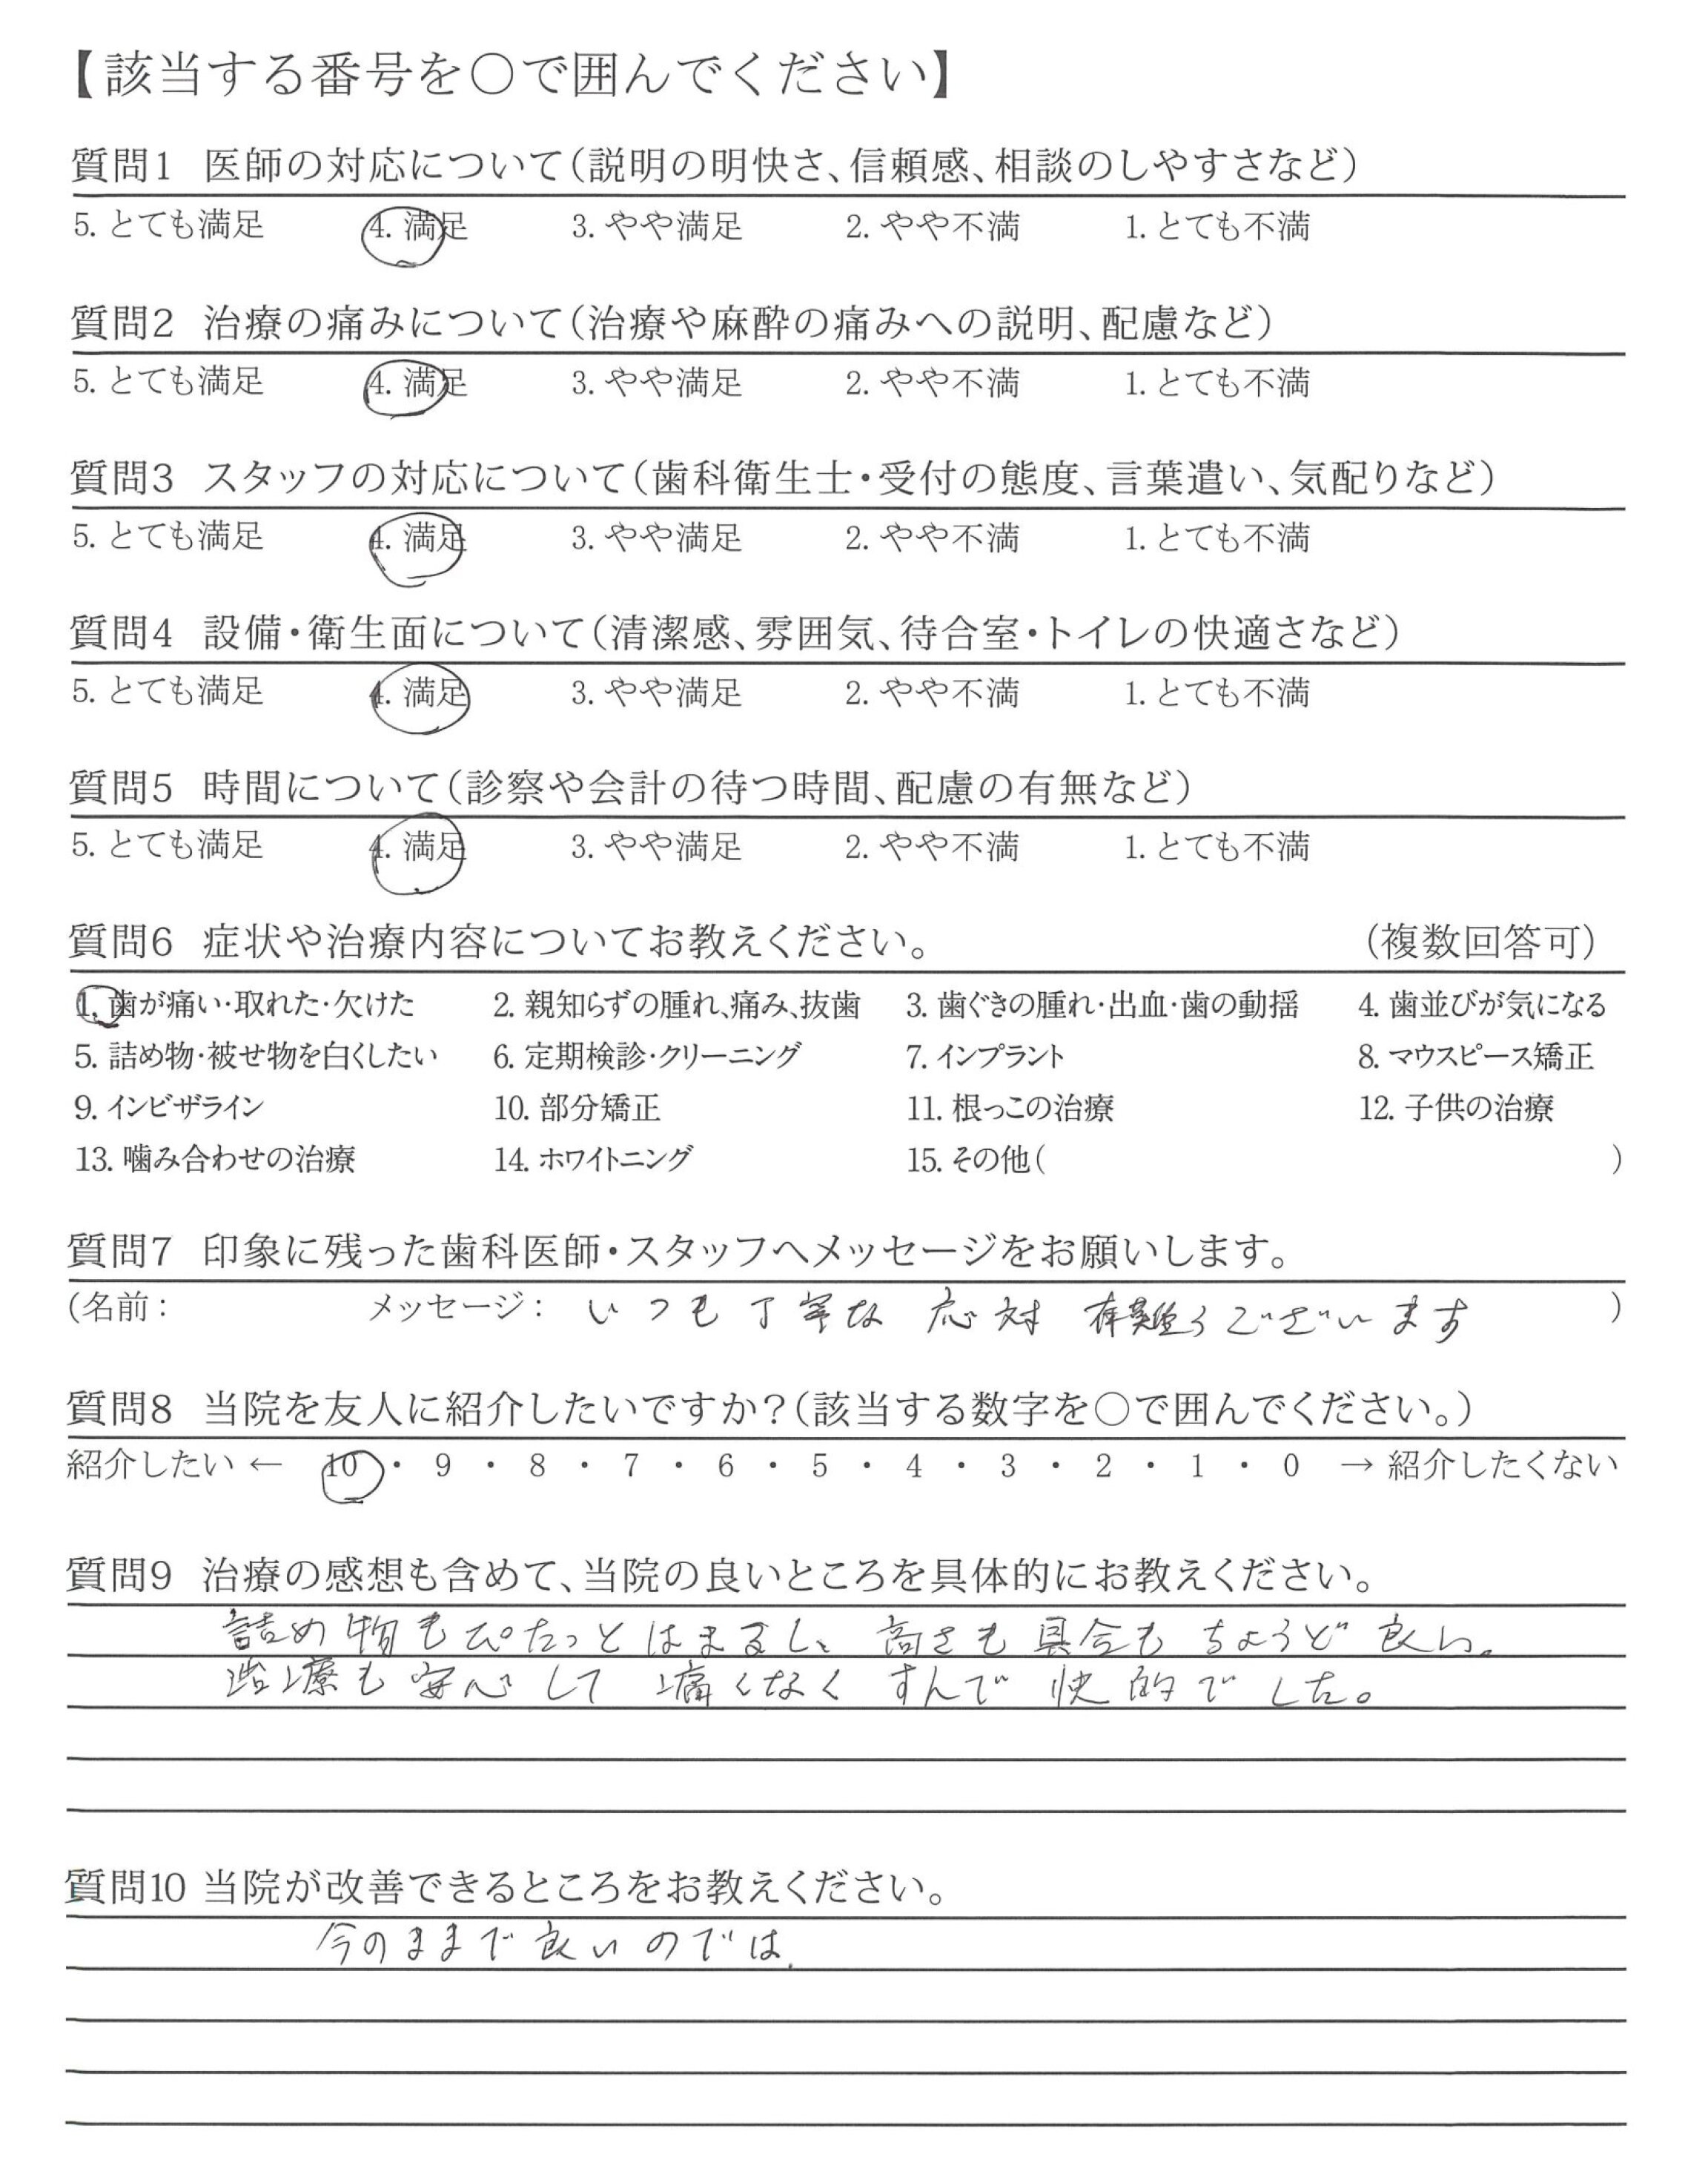 【該当する番号を〇で囲んでください】
質問1 医師の対応について(説明の明快さ、信頼感、相談のしやすさなど)
5. とても満足 4. 満足 3. やや満足 2. やや不満 1. とても不満
質問2 治療の痛みについて(治療や麻酔の痛みへの説明、配慮など)
5. とても満足 4. 満足 3. やや満足 2. やや不満 1. とても不満
質問3 スタッフの対応について(歯科衛生士・受付の態度、言葉遣い、気配りなど)
5. とても満足 4. 満足 3. やや満足 2. やや不満 1. とても不満
質問4 設備・衛生面について(清潔感、雰囲気、待合室・トイレの快適さなど)
5. とても満足 4. 満足 3. やや満足 2. やや不満 1. とても不満
質問5 時間について(診察や会計の待つ時間、配慮の有無など)
5. とても満足 4. 満足 3. やや満足 2. やや不満 1. とても不満
質問6 症状や治療内容についてお教えください。 (複数回答可)
1. 歯が痛い・取れた・欠けた 2. 親知らずの腫れ、痛み、抜歯 3. 歯ぐきの腫れ・出血・歯の動揺 4. 歯並びが気になる
5. 詰め物・被せ物を白くしたい 6. 定期検診・クリーニング 7. インプラント 8. マウスピース矯正
9. インビザライン 10. 部分矯正 11. 根っこの治療 12. 子供の治療
13. 噛み合わせの治療 14. ホワイトニング 15. その他( )
質問7 印象に残った歯科医師・スタッフへメッセージをお願いします。
(名前: メッセージ: いつも丁寧な応対有難うございます )
質問8 当院を友人に紹介したいですか?(該当する数字を〇で囲んでください。)
紹介したい ← 10 ・ 9 ・ 8 ・ 7 ・ 6 ・ 5 ・ 4 ・ 3 ・ 2 ・ 1 ・ 0 → 紹介したくない
質問9 治療の感想も含めて、当院の良いところを具体的にお教えください。
詰め物もぴたっとはまるし、高さも具合もちょうど良い。
治療も安心して痛くなくすんで快的でした。
質問10 当院が改善できるところをお教えください。
今のままで良いのでは.